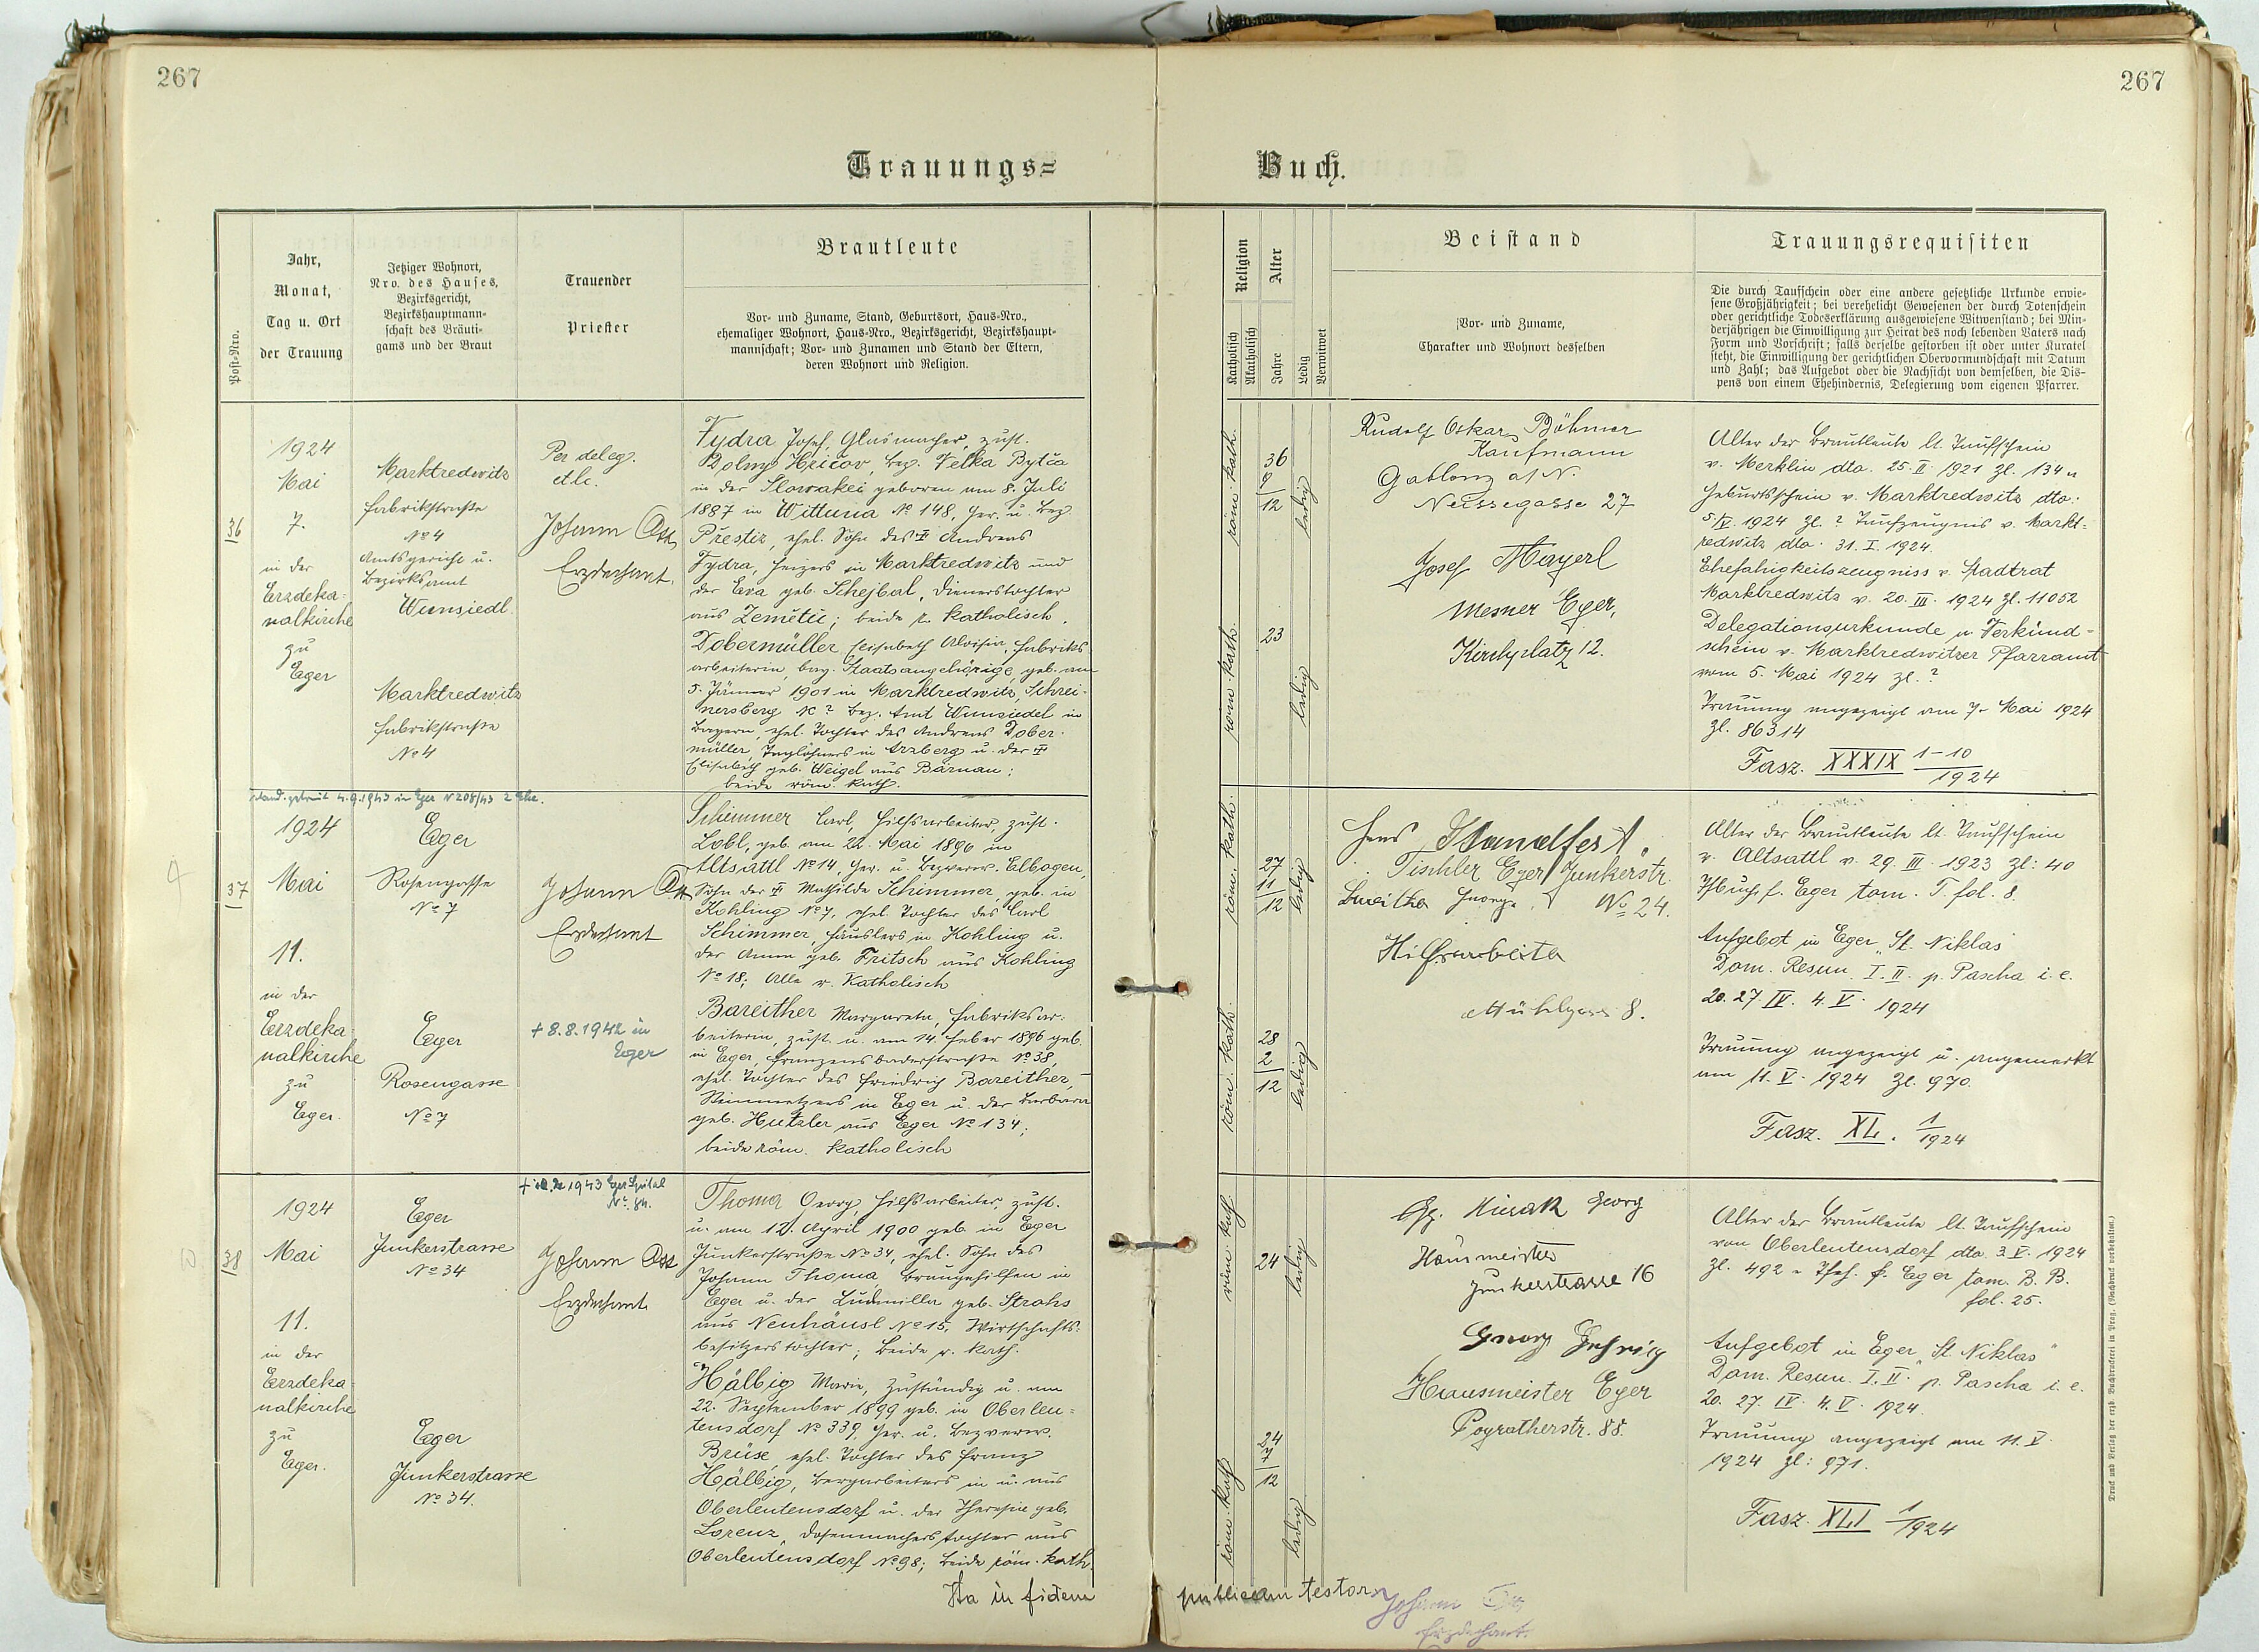 267
267
Trauungs=
Buch.
Post-Nro.
Jahr,
Monat,
Tag u. Ort
der Trauung
Jetziger Wohnort,
Nro. des Hauses,
Bezirksgericht,
Bezirkshauptmann-
schaft des Bräuti-
gams und der Braut
Trauender
Priester
Brautleute
Vor- und Zuname, Stand, Geburtsort, Haus-Nro.,
ehemaliger Wohnort, Haus-Nro., Bezirksgericht, Bezirkshaupt-
mannschaft; Vor- und Zunamen und Stand der Eltern,
deren Wohnort und Religion.
Religion
Katholisch
Akatholisch
Alter
Jahre
Ledig
Verwitwet
Beistand
Vor- und Zuname,
Charakter und Wohnort desselben
Trauungsrequisiten
Die durch Taufschein oder eine andere gesetzliche Urkunde erwie-
sene Großjährigkeit; bei verehelicht Gewesenen der durch Totenschein
oder gerichtliche Todeserklärung ausgewiesene Witwenstand; bei Min-
derjährigen die Einwilligung zur Heirat des noch lebenden Vaters nach
Form und Vorschrift; falls derselbe gestorben ist oder unter Kuratel
steht, die Einwilligung der gerichtlichen Obervormundschaft mit Datum
und Zahl; das Aufgebot oder die Nachsicht von demselben, die Dis-
pens von einem Ehehindernis, Delegierung vom eigenen Pfarrer.
36
1924
Mai
7.
in der
Erzdeka=
nalkirche
zu
Eger
Marktredwitz
Fabrikstraße
No 4
Amtsgericht u.
Bezirksamt
Wunsiedl
Marktredwitz
Fabrikstraße
No 4
Per deleg.
etlc.
Johann Ott
Erzdechant.
Fydra Josef, Glasmacher, zust.
Dolny Hričov, Bez. Velka Bytča
in der Slowakei geboren am 8. Juli
1887 in Wittuna No 148, Ger. u. Bez.
Prestiz, ehel. Sohn des Andreas
Fydra, Heizers in Marktredwitz und
der Eva geb. Schejbal, Dienerstochter
aus Zemětic; beide r. katholisch.
Dobermüller Elisabeth Aloisia, Fabriks
arbeiterin, bay. Staatsangehörige, geb. am
5. Jänner 1901 in Marktredwitz, Schrei-
nersberg No ? Bez. Amt Wunsiedel in
Bayern, ehel. Tochter des Andreas Dober-
müller, Taglöhners in Arzberg u. der
Elisabeth geb. Weigel aus Bärnau;
beide röm. kath.
röm. kath.
36
9
12
ledig
röm. kath.
23
ledig
Rudolf Oskar Böhmer
Kaufmann
Gablonz a/N.
Neissegasse 27
Josef Mayerl
Mesner Eger,
Kirchplatz 12.
Alter der Brautleute lt. Taufschein
v. Merklin dto. 25. II. 1921 Zl. 134 u
Geburtsschein v. Marktredwitz dto.
5/IV. 1924 Zl. ? Taufzeugnis v. Markt-
redwitz dto. 31. I. 1924.
Ehefähigkeitszeugniss v. Stadtrat
Marktredwitz v. 20. III. 1924 Zl. 11052
Delegationsurkunde u Verkünd=
schein v. Marktredwitzer Pfarramt
vom 5. Mai 1924 Zl. ?
Trauung angezeigt am 7. Mai 1924
Zl. 86314
Fasz. XXXIX 1-10/1924
stand. getraut 4.9.1943 in Eger No 208/43 2. Ehe.
37
1924
Mai
11.
in der
Erzdeka
nalkirche
zu
Eger.
Eger
Rosengasse
No 7
Eger
Rosengasse
No 7
Johann Ott
Erzdechant
+ 8.8.1942 in
Eger
Schimmer Carl, Hilfsarbeiter, zust.
Lobl, geb. am 22. Mai 1896 in
Altsattl No 14, Ger. u. Bezverw. Elbogen,
Sohn der Mathilde Schimmer, geb. in
Kohling No 7, ehel. Tochter des Carl
Schimmer, Häuslers in Kohling u.
der Anna geb. Fritsch aus Kohling
No 18; Alle r. Katholisch
Bareither Margareta, Fabriksar-
beiterin, zust. u. am 14. Feber 1896 geb.
in Eger, Franzensbaderstraße No 38,
ehel. Tochter des Friedrich Bareither,
Steinmetzers in Eger u. der Barbara
geb. Hutzler aus Eger No 134;
beide röm. katholisch
röm. kath.
27
11
12
ledig
röm. kath.
28
2
12
ledig
Hans Handfest.
Tischler Eger Junkerstr.
No 24.
Bareither Georg
Hilfsarbeiter
Mühlgasse 8.
Alter der Brautleute lt. Taufschein
v. Altsattl v. 29. III. 1923 Zl: 40
Tfbuch f. Eger tom. T. fol. 8.
Aufgebot in Eger „St. Niklas
Dom. Resur. I. II. p. Pascha i. e.
20. 27. IV. 4. V. 1924
Trauung angezeigt u. angemerkt
am 11. V. 1924 Zl. 970.
Fasz. XL. 1/1924
38
1924
Mai
11.
in der
Erzdeka=
nalkirche
zu
Eger.
Eger
Junkerstrasse
No 34
Eger
Junkerstrasse
No 34.
1943 Eger Spital
No 84.
Johann Ott
Erzdechant
Thoma Georg, Hilfsarbeiter, zust.
u. am 12. April 1900 geb. in Eger
Junkerstraße No 34, ehel. Sohn des
Johann Thoma, Braugehilfen in
Eger u. der Ludmilla geb. Strohs
aus Neuhäusl No 15, Wirtschafts-
besitzerstochter; beide r. kath.
Hälbig Marie, zuständig u. am
22. September 1899 geb. in Oberleu=
tensdorf No 339, Ger. u. Bezverw.
Brüx, ehel. Tochter des Franz
Hälbig, Bergarbeiters in u. aus
Oberleutensdorf u. der Theresie geb.
Lorenz, Dosenmacherstochter aus
Oberleutensdorf No 98; beide röm. kath
röm. kath.
24
ledig
röm. kath.
24
7
12
ledig
Georg
Hausmeister
Junkerstrasse 16
Georg Gehring
Hausmeister Eger
Pograther str. 88.
Alter der Brautleute lt. Taufschein
von Oberleutensdorf dto. 3. V. 1924
Zl. 492 u Tfsch. f. Eger tom. B. B.
fol. 25.
Aufgebot in Eger „St. Niklas"
Dom. Resur. I. II. p. Pascha i. e.
20. 27. IV. 4. V. 1924.
Trauung angezeigt am 11. V.
1924 Zl: 971.
Fasz. XLI 1/1924
Ita in fidem
publicam testor
Johann Ott
Erzdechant.
Druck und Verlag der erzb. Buchdruckerei in Prag. (Nachdruck vorbehalten.)